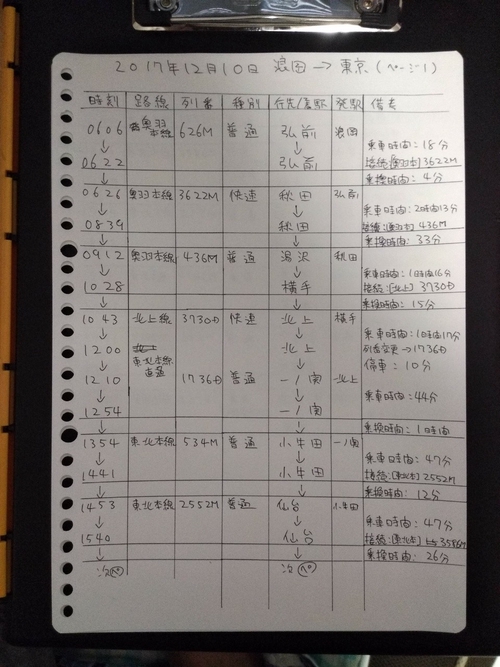 2017年12月10日 浪岡 → 東京 (ページ1)
時刻 路線 列番 種別 行先/着駅 発駅 備考
0606 奥羽本線 626M 普通 弘前 浪岡
↓ ↓ 乗車時間:18分
0622 弘前 接続:[奥羽本]3622M
↓ 乗換時間:4分
0626 奥羽本線 3622M 快速 秋田 弘前
↓ ↓ 乗車時間:2時間13分
0839 秋田 接続:[奥羽本]436M
↓ 乗換時間:33分
0912 奥羽本線 436M 普通 湯沢 秋田
↓ ↓ 乗車時間:1時間16分
1028 横手 接続:[北上]3730D
↓ 乗換時間:15分
1043 北上線 3730D 快速 北上 横手
↓ ↓ 乗車時間:1時間17分
1200 北上 列番変更→1736D
↓ 東北本線直通 ↓ 停車:10分
1210 1736D 普通 一ノ関 北上
↓ ↓ 乗車時間:44分
1254 一ノ関
↓ 乗換時間:1時間
1354 東北本線 534M 普通 小牛田 一ノ関
↓ ↓ 乗車時間:47分
1441 小牛田 接続:[東北本]2552M
↓ 乗換時間:12分
1453 東北本線 2552M 普通 仙台 小牛田
↓ ↓ 乗車時間:47分
1540 仙台 接続:[東北本]3586M
↓ ↓ 乗換時間:26分
次ペ 次ペ